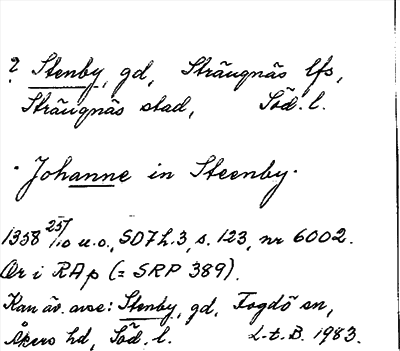 ? Stenby, gd, Strängnäs lfs,
Strängnäs stad, Söd. l.
"Johanne in Steenby."
1358 25/10 u.o., SD 7 h.3, s. 123, nr 6002.
Or i RAp (= SRP 389).
Kan äv. avse: Stenby, gd, Fogdö sn,
Åkers hd, Söd. l. L-t.B. 1983.